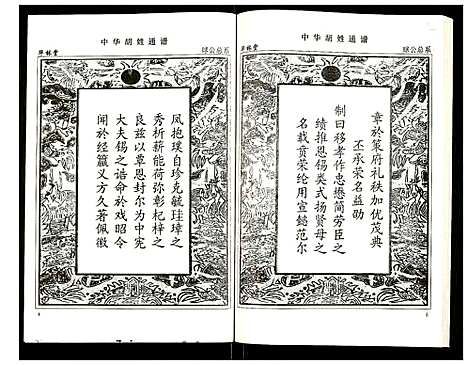 中华胡姓通谱
球公总系
章於策府礼秩加优茂典
丕承荣名益劭
制曰移孝作忠懋简劳臣之
绩推恩锡类式扬贤母之
名载贲荣纶用宣懿范尔
中华胡姓通谱
华林堂
夙抱璞自珍克毓珪璋之
秀析薪能荷弥彰杞梓之
良兹以覃恩封尔为中宪
大夫锡之诰命於戏昭令
闻於经籝义方久著佩徽